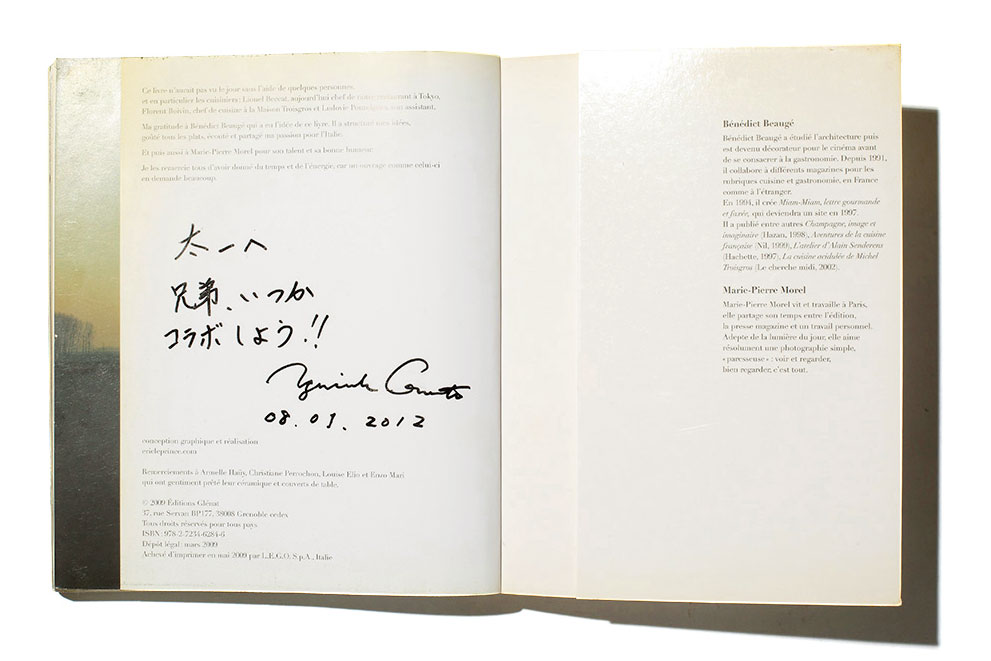 Ce livre n'aurait pas vu le jour sans l'aide de quelques personnes,
et en particulier les cuisiniers: Lionel Beccat, aujourd'hui chef de notre restaurant à Tokyo,
Florent Boivin, chef de cuisine à la Maison Troisgros et Ludovic son assistant.
Ma gratitude à Bénédict Beaugé qui a eu l'idée de ce livre. Il a structuré mes idées,
goûté tous les plats, écouté et partagé ma passion pour l'Italie.
Et puis aussi à Marie-Pierre Morel pour son talent et sa bonne humeur.
Je les remercie tous d'avoir donné du temps et de l'énergie, car un ouvrage comme celui-ci
en demande beaucoup.
太一へ
兄弟、いつか
コラボしよう!!
08.09.2012
conception graphique et réalisation
ericleprince.com
Remerciements à Armelle Haïÿs, Christiane Perrochon, Louise Elio et Enzo Mari
qui ont gentiment prêté leur céramique et couverts de table.
© 2009 Éditions Glénat
37, rue Servan BP177, 38008 Grenoble cedex
Tous droits réservés pour tous pays
ISBN: 978-2-7234-6284-6
Dépôt légal: mars 2009
Achevé d'imprimer en mai 2009 par L.E.G.O. S.p.A., Italie
Bénédict Beaugé
Bénédict Beaugé a étudié l'architecture puis
est devenu décorateur pour le cinéma avant
de se consacrer à la gastronomie. Depuis 1991,
il collabore à différents magazines pour les
rubriques cuisine et gastronomie, en France
comme à l'étranger.
En 1994, il crée Miam-Miam, lettre gourmande
et faxée, qui deviendra un site en 1997.
Il a publié entre autres Champagne, image et
imaginaire (Hazan, 1998), Aventures de la cuisine
française (Nil, 1999), L'atelier d'Alain Senderens
(Hachette, 1997), La cuisine acidulée de Michel
Troisgros (Le cherche midi, 2002).
Marie-Pierre Morel
Marie-Pierre Morel vit et travaille à Paris,
elle partage son temps entre l'édition,
la presse magazine et un travail personnel.
Adepte de la lumière du jour, elle aime
résolument une photographie simple,
« paresseuse » : voir et regarder,
bien regarder, c'est tout.